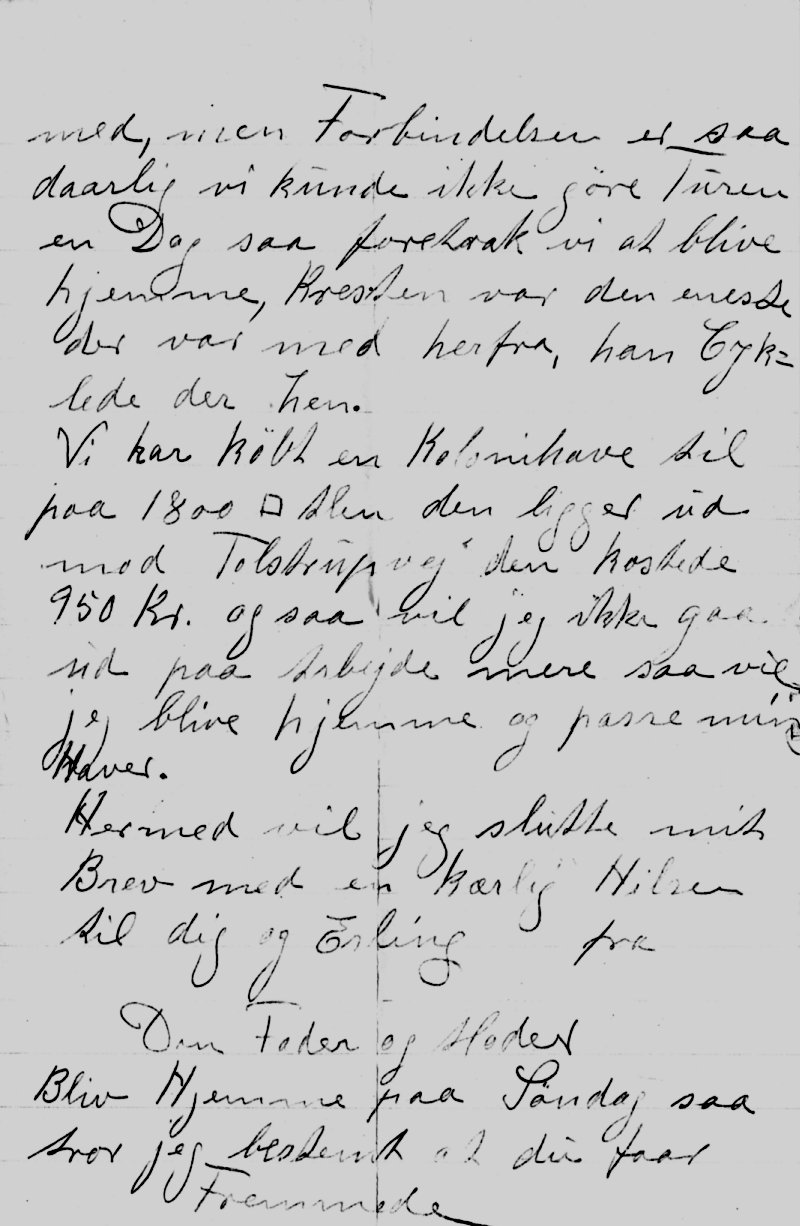 med, men Forbindelsen er saa
daarlig vi kunde ikke göre Turen
en Dag saa foretrak vi at blive
hjemme, Kresten var den eneste
der var med herfra, han Cyk=
lede der hen.
Vi har köbt en Kolonihave til
paa 1800 □ Alen den ligger ud
mod Tolstrupvej den kostede
950 Kr. og saa vil jeg ikke gaa
ud paa Arbejde mere saa vil
jeg blive hjemme og passe min
Haver.
Hermed vil jeg slutte mit
Brev med en kærlig Hilsen
til dig og Erling fra
Din Fader og Moder
Bliv Hjemme paa Söndag saa
tror jeg bestemt at du faar
Fremmede